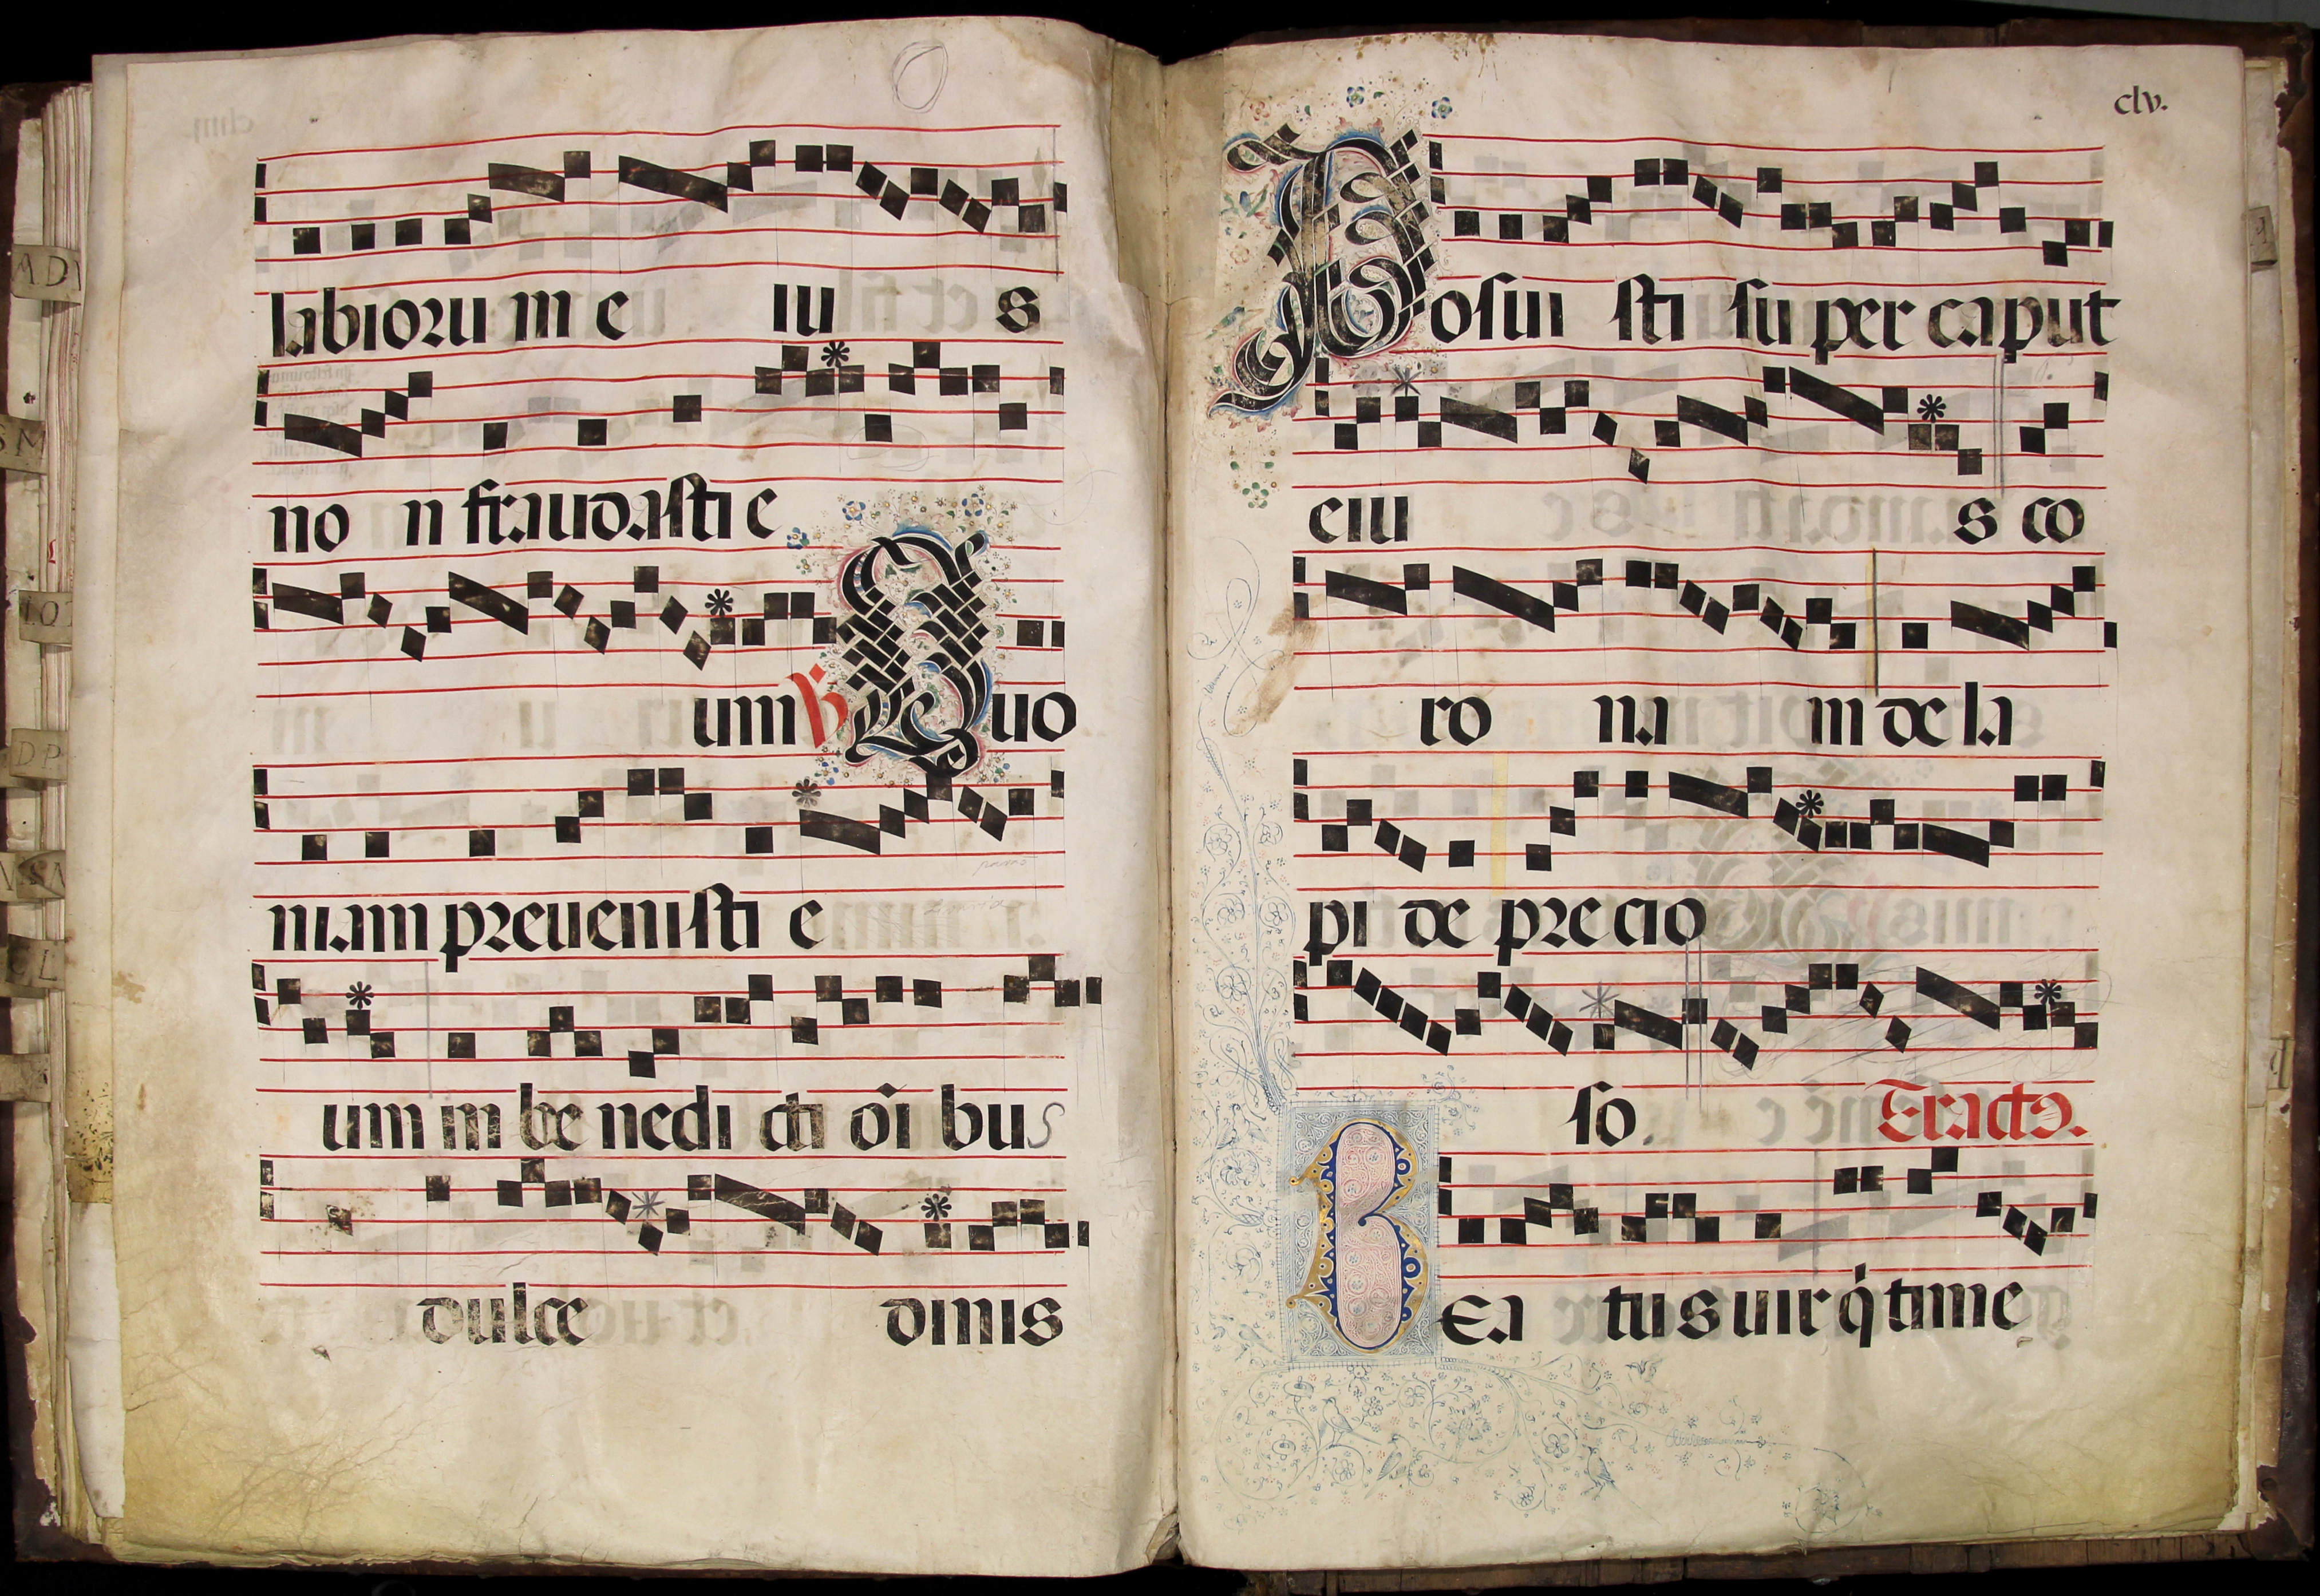 labiorum e iu s
no n fraudasti e
um ℣ Quo
niam preuenisti e
um in be nedi cti oĩ bus
dulce dinis
clv.
Posui sti su per caput
eiu s co
ro na m de la
pi de precio
so. Tractꝰ.
BEa tus uir q̇ time